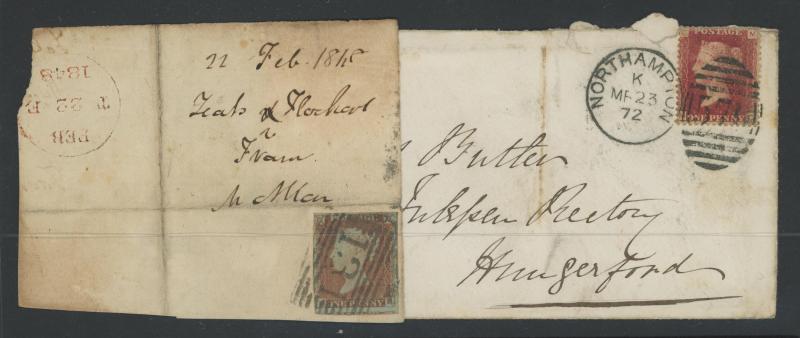 FEB
22
1848
22 Feb. 1848
Teals & Hochart
From
McAllan
POSTAGE
ONE PENNY
13
NORTHAMPTON
K
MR 23
72
POSTAGE
ONE PENNY
Butler
Inkpen Rectory
Hungerford